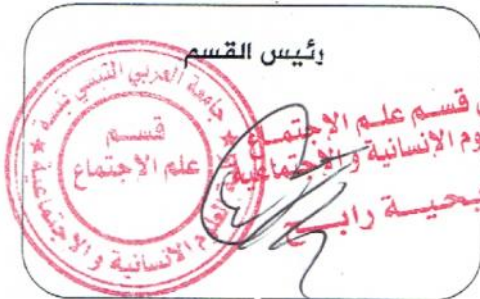 رئيس القسم
جامعة العربي التبسي تبسة
قسم
علم الاجتماع
العلوم الانسانية و الاجتماعية
قسم علم الاجتماع
وم الانسانية و الاجتماعية
بحية رابح